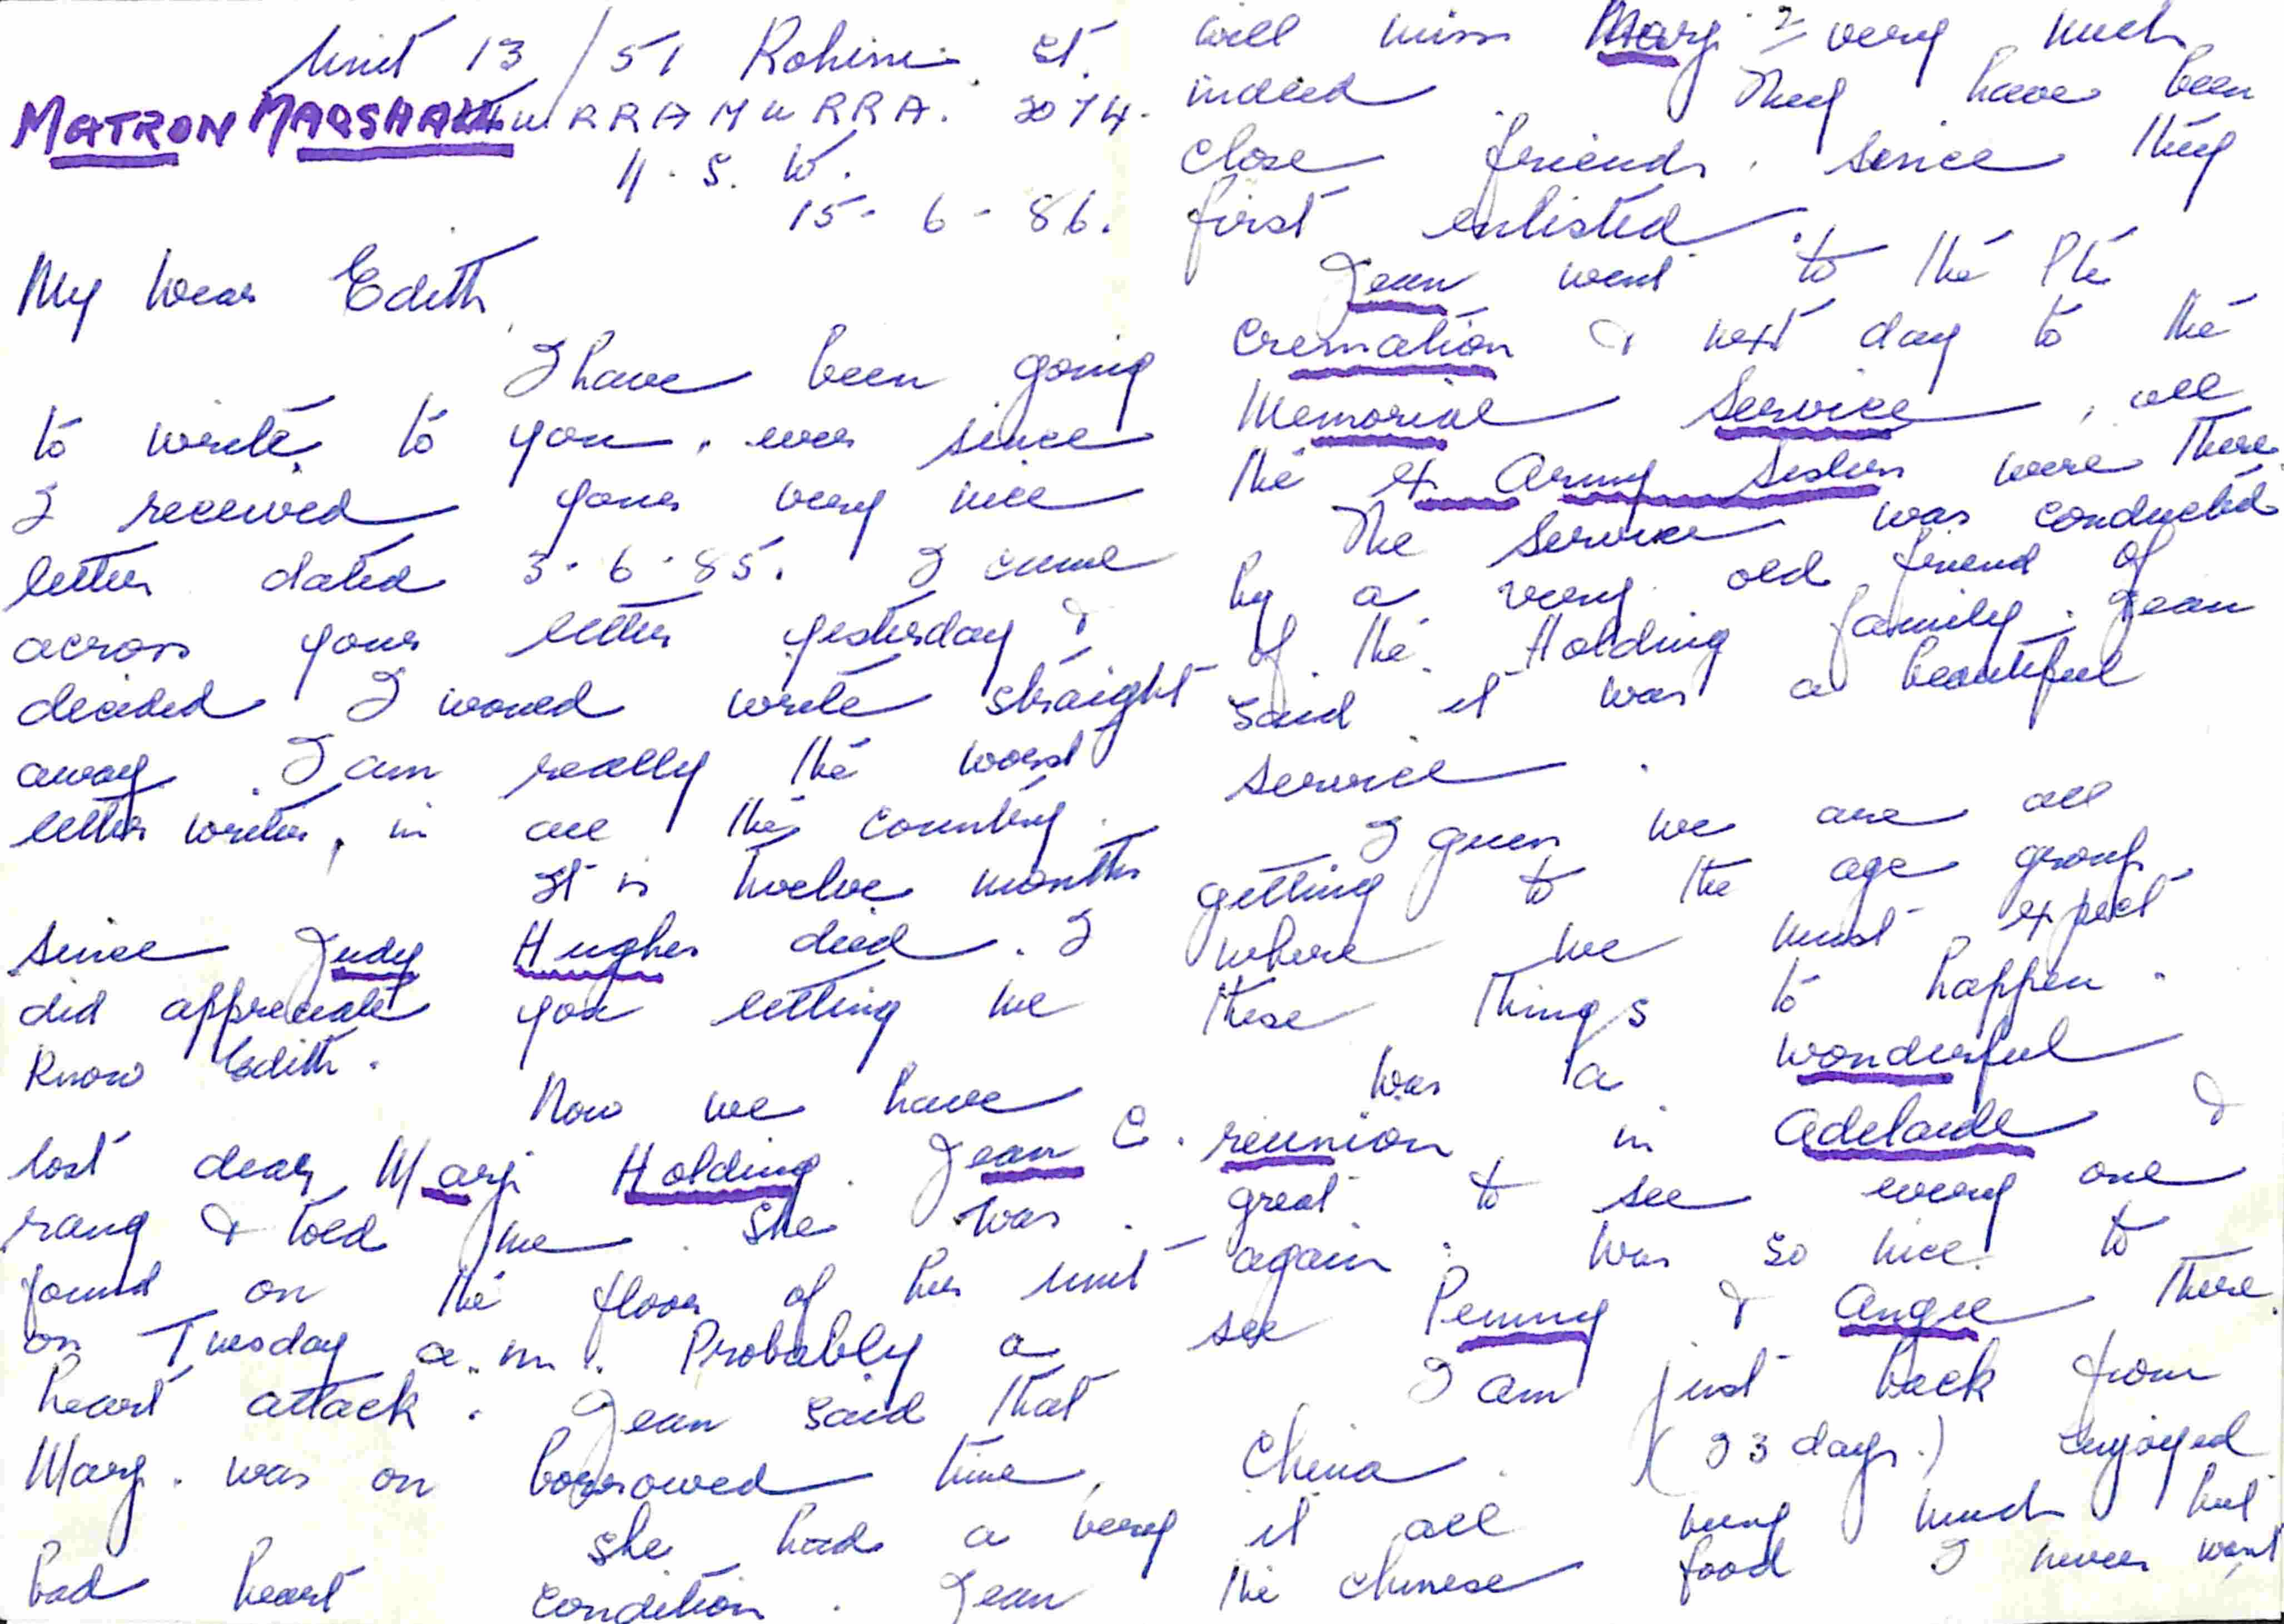 Unit 13/51 Rohini St.
MATRON MARSHALL TURRAMURRA. 2074.
N.S.W.
15-6-86.
My Dear Edith,
I have been going
to write to you, ever since
I received your very nice
letter dated 3.6.85. I came
across your letter yesterday &
decided I would write straight
away. I am really the worst
letter writer, in all the country.
It is twelve months
since Judy Hughes died. I
did appreciate you letting me
know Edith.
Now we have
lost dear Marj Holding. Jean C.
rang & told me. She was
found on the floor of her unit
on Tuesday a.m. Probably a
heart attack. Jean said that
Marj. was on borrowed time,
she had a very
bad heart condition. Jean
will miss Marj very much
indeed. They have been
close friends, since they
first enlisted.
Jean went to the Pte
cremation & next day to the
Memorial Service, all
the ex Army Sisters were there.
The Service was conducted
by a very old friend of
of the Holding family. Jean
said it was a beautiful
service.
I guess we are all
getting to the age group
where we must expect
these things to happen.
Was a wonderful
reunion in Adelaide &
great to see every one
again. Was so nice to
see Penny & Angie there.
I am just back from
China. (23 days.) Enjoyed
it all very much but
the Chinese food I never want